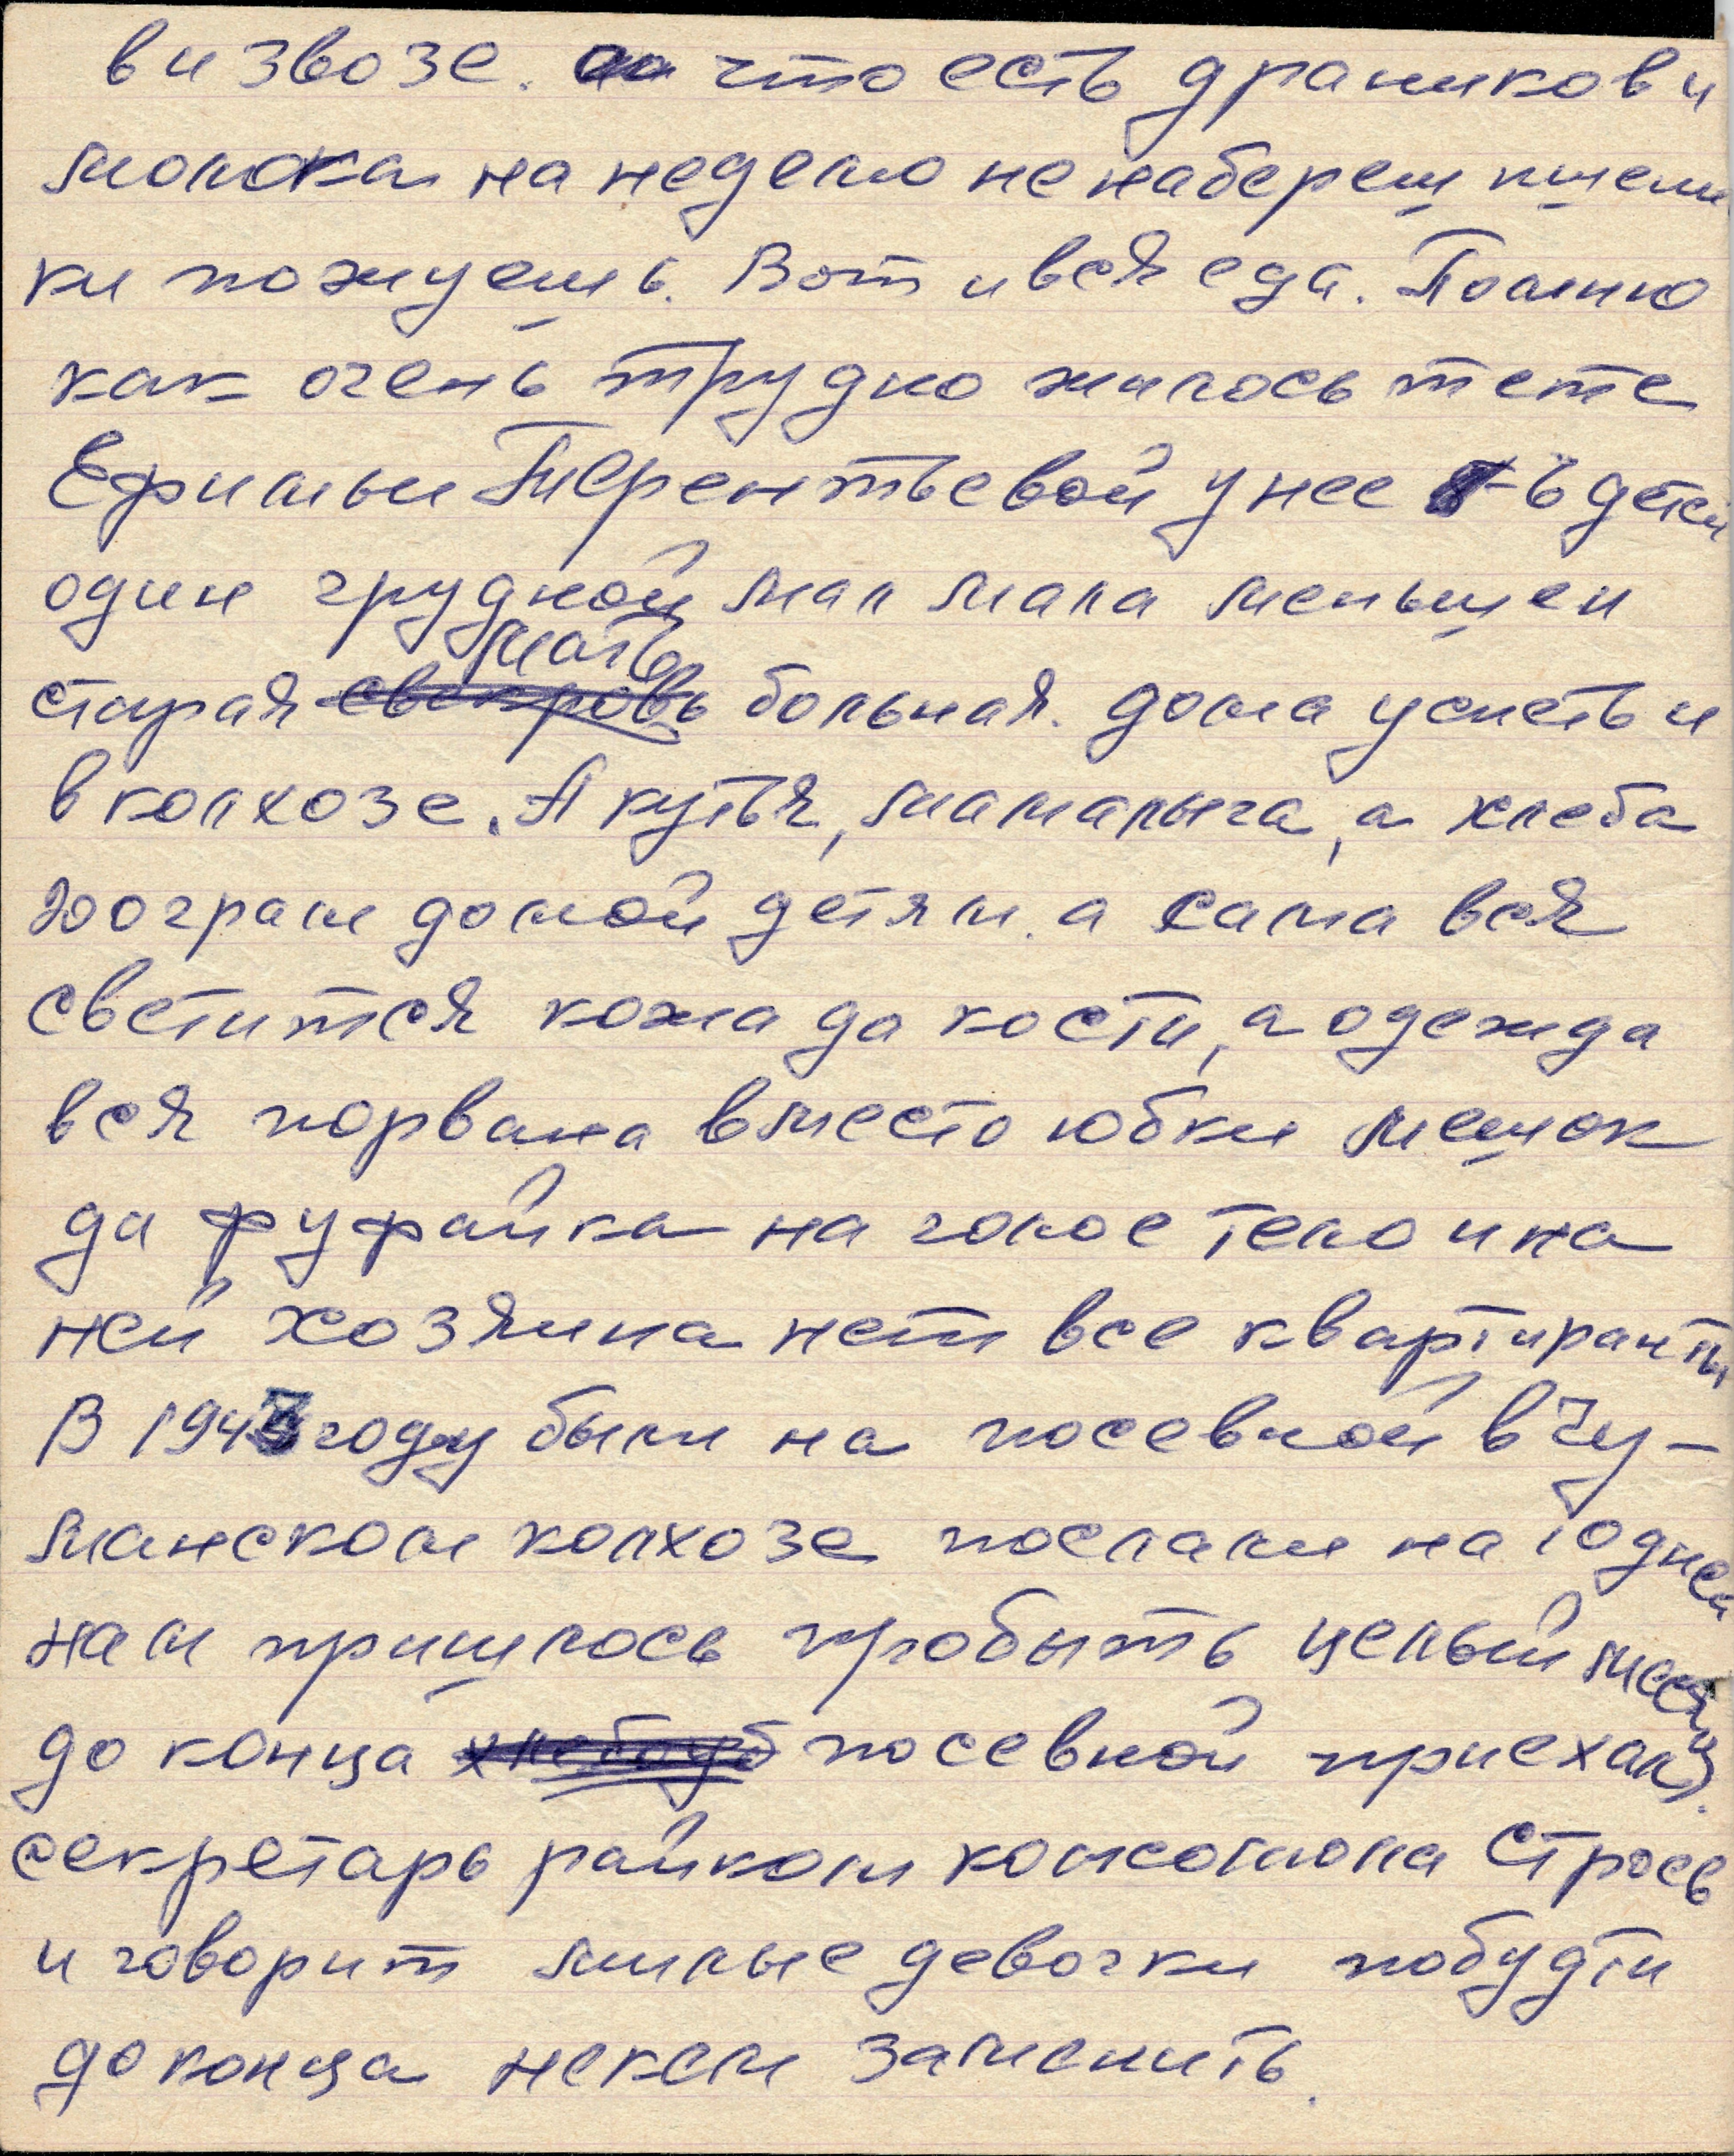 в извозе. что есть драников и
молока на неделю не набереш пшени
ки пожуешь. Вот и вся еда. Помню
как очень трудно жилось тете
Ефимьи Терентьевой у нее 6 детей
один грудной мал мала меньшеи
старая мать больная. дома успеть и
в колхозе. А кутья, мамалыга, а хлеба
200 грам домой детям. а сама вся
светится кожа да кости, а одежда
вся порвана вместо юбки мешок
да фуфайка на голое тело и на
ней хозяина нет все квартиранты
В 1943 году были на посевной в Чу-
манском колхозе послали на 10 дней
нам пришлось пробыть целый месяц
до конца посевной приехал
секретарь райком комсомола Строев
и говорит милые девочки побудти
до конца некем заменить.